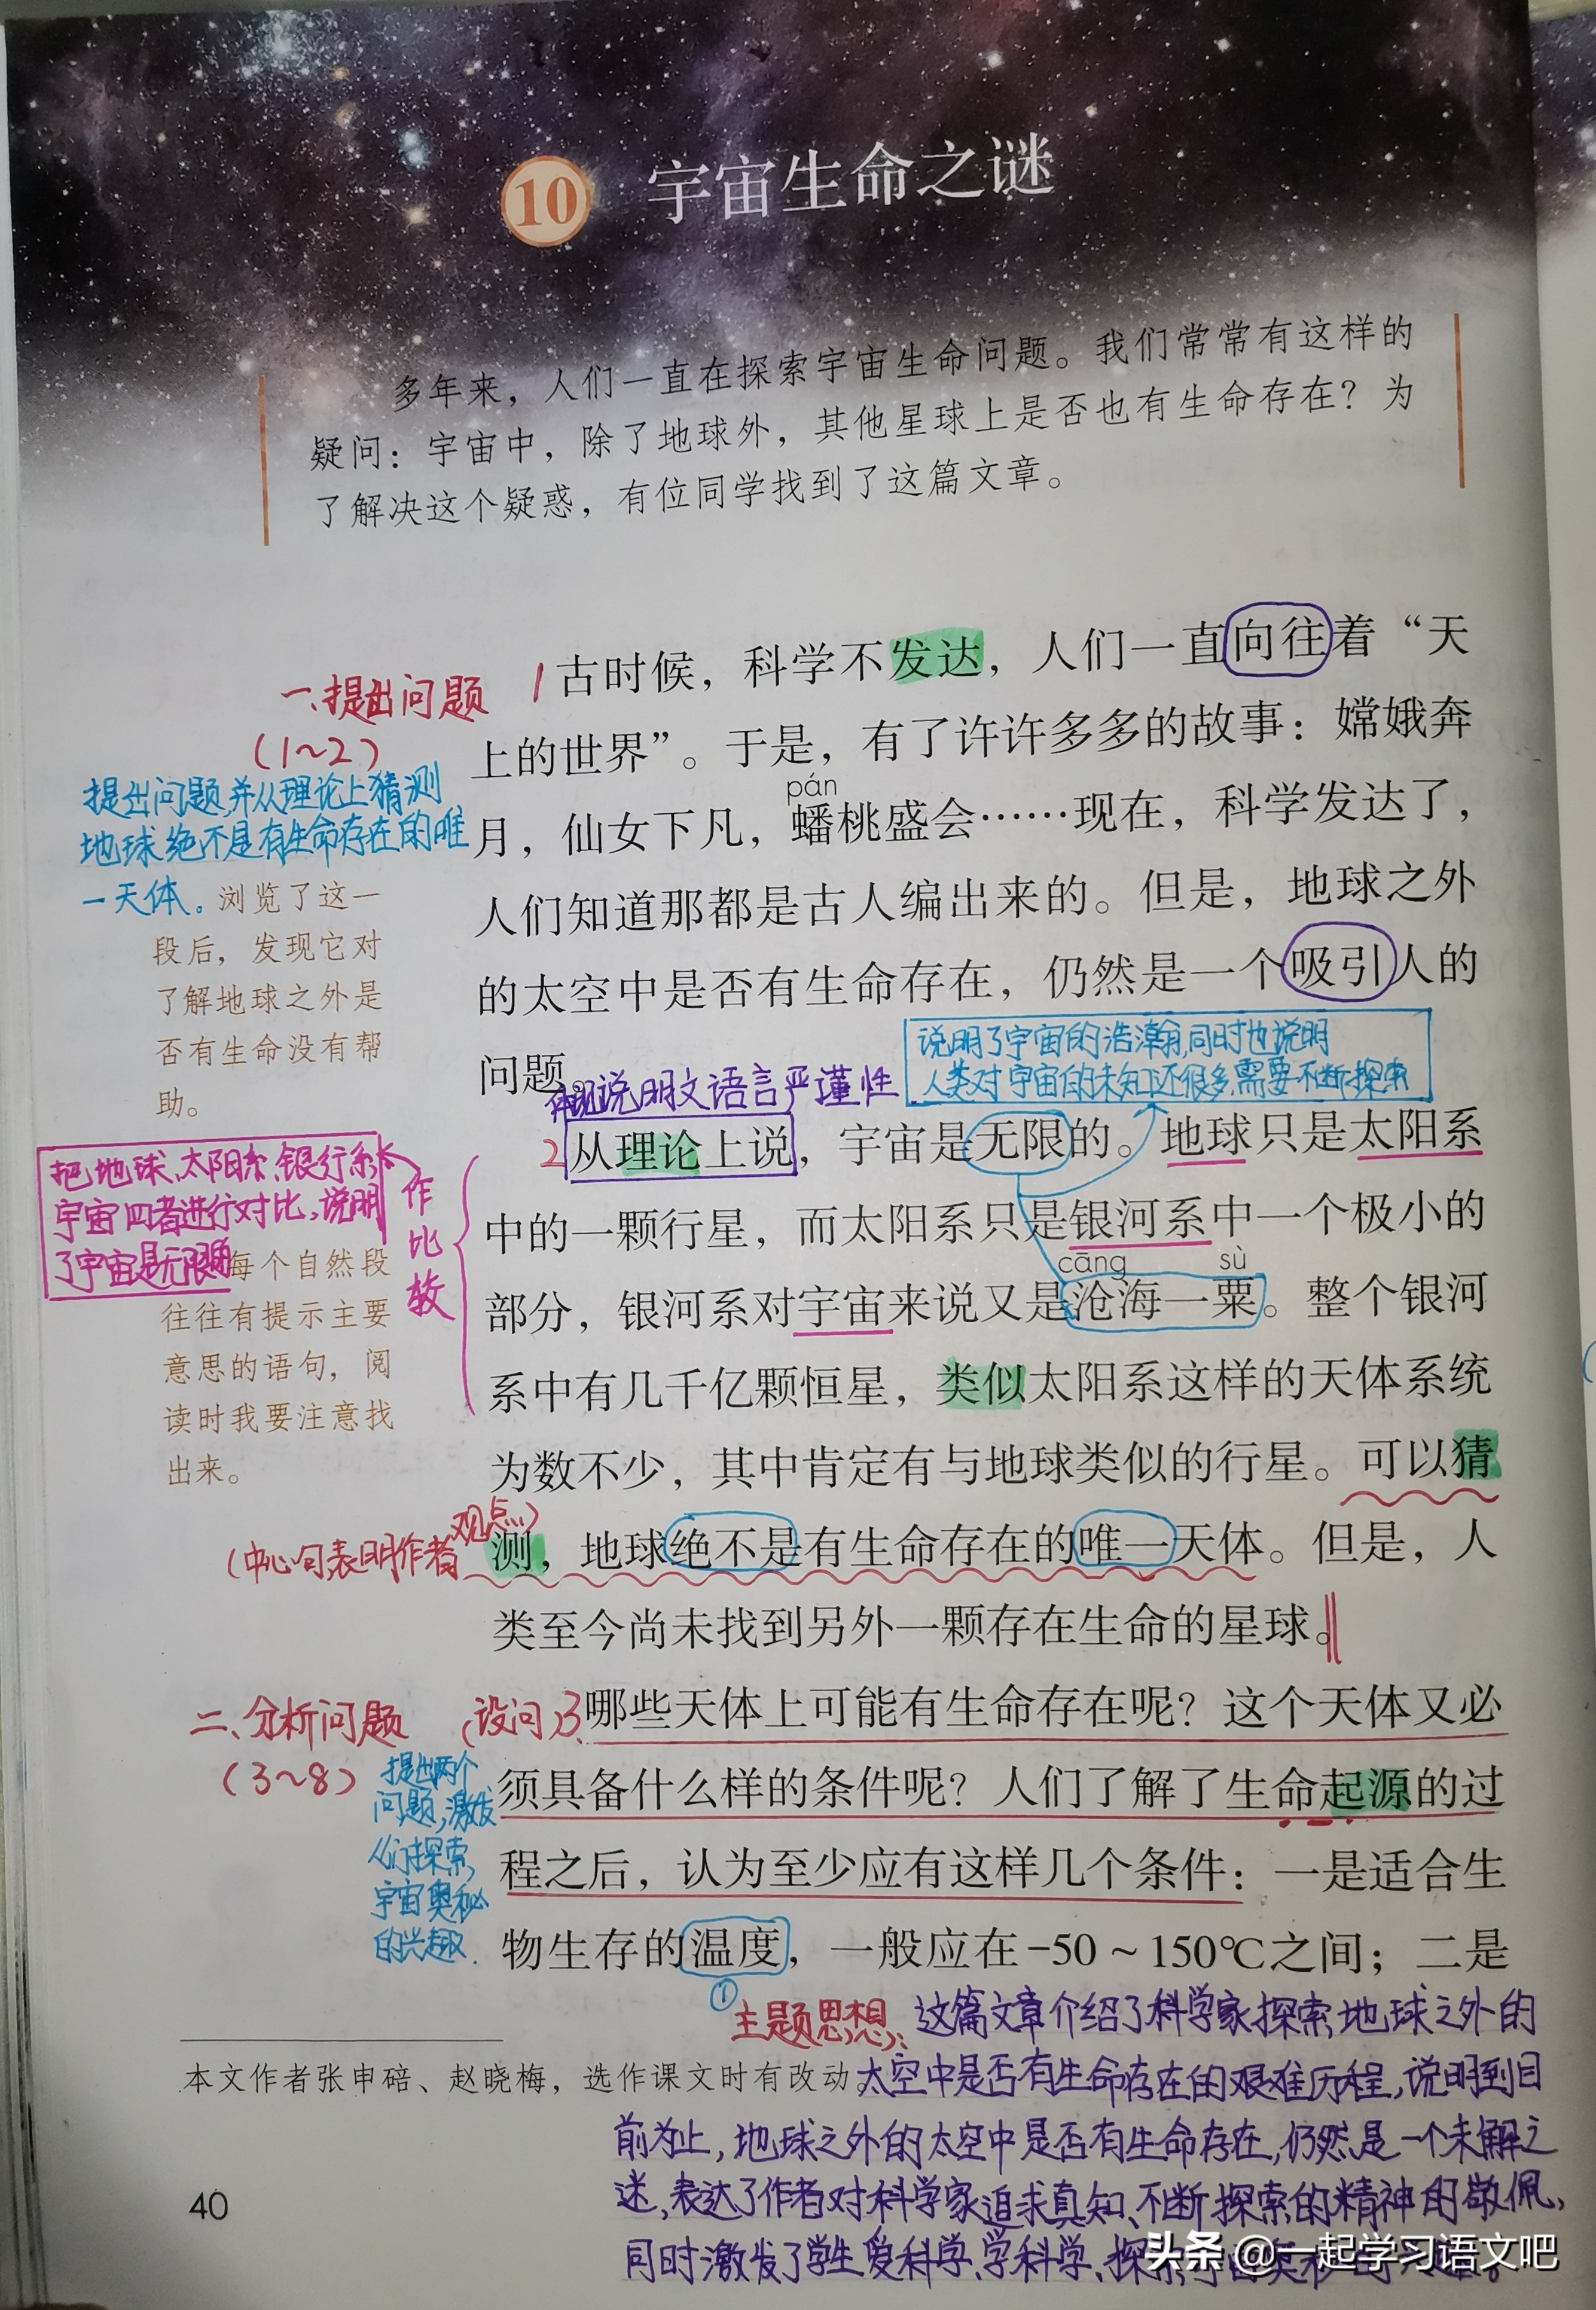 10 宇宙生命之谜
多年来，人们一直在探索宇宙生命问题。我们常常有这样的
疑问：宇宙中，除了地球外，其他星球上是否也有生命存在？为
了解决这个疑惑，有位同学找到了这篇文章。
一、提出问题
（1～2）
提出问题，并从理论上猜测
地球绝不是有生命存在的唯
一天体。
浏览了这一
段后，发现它对
了解地球之外是
否有生命没有帮
助。
1 古时候，科学不发达，人们一直向往着“天
上的世界”。于是，有了许许多多的故事：嫦娥奔
pán
月，仙女下凡，蟠桃盛会……现在，科学发达了，
人们知道那都是古人编出来的。但是，地球之外
的太空中是否有生命存在，仍然是一个吸引人的
问题。
说明了宇宙的浩瀚，同时也说明
人类对宇宙的未知还很多，需要不断探索
体现说明文语言严谨性
把地球、太阳系、银行系、
宇宙四者进行对比，说明
了宇宙是无限的
作比较
每个自然段
往往有提示主要
意思的语句，阅
读时我要注意找
出来。
2 从理论上说，宇宙是无限的。地球只是太阳系
中的一颗行星，而太阳系只是银河系中一个极小的
cāng sù
部分，银河系对宇宙来说又是沧海一粟。整个银河
系中有几千亿颗恒星，类似太阳系这样的天体系统
为数不少，其中肯定有与地球类似的行星。可以猜
测，地球绝不是有生命存在的唯一天体。但是，人
类至今尚未找到另外一颗存在生命的星球。
（中心句，表明作者观点）
二、分析问题
（3～8）
（设问）
提出两个
问题，激发
人们探索
宇宙奥秘
的兴趣.
3 哪些天体上可能有生命存在呢？这个天体又必
须具备什么样的条件呢？人们了解了生命起源的过
程之后，认为至少应有这样几个条件：一是适合生
物生存的温度，一般应在-50～150℃之间；二是
①
主题思想：这篇文章介绍了科学家探索地球之外的
太空中是否有生命存在的艰难历程，说明到目
前为止，地球之外的太空中是否有生命存在，仍然是一个未解之
迷，表达了作者对科学家追求真知、不断探索的精神的敬佩，
同时激发了学生爱科学、学科学、探索
本文作者张申碚、赵晓梅，选作课文时有改动。
40
头条 @一起学习语文吧